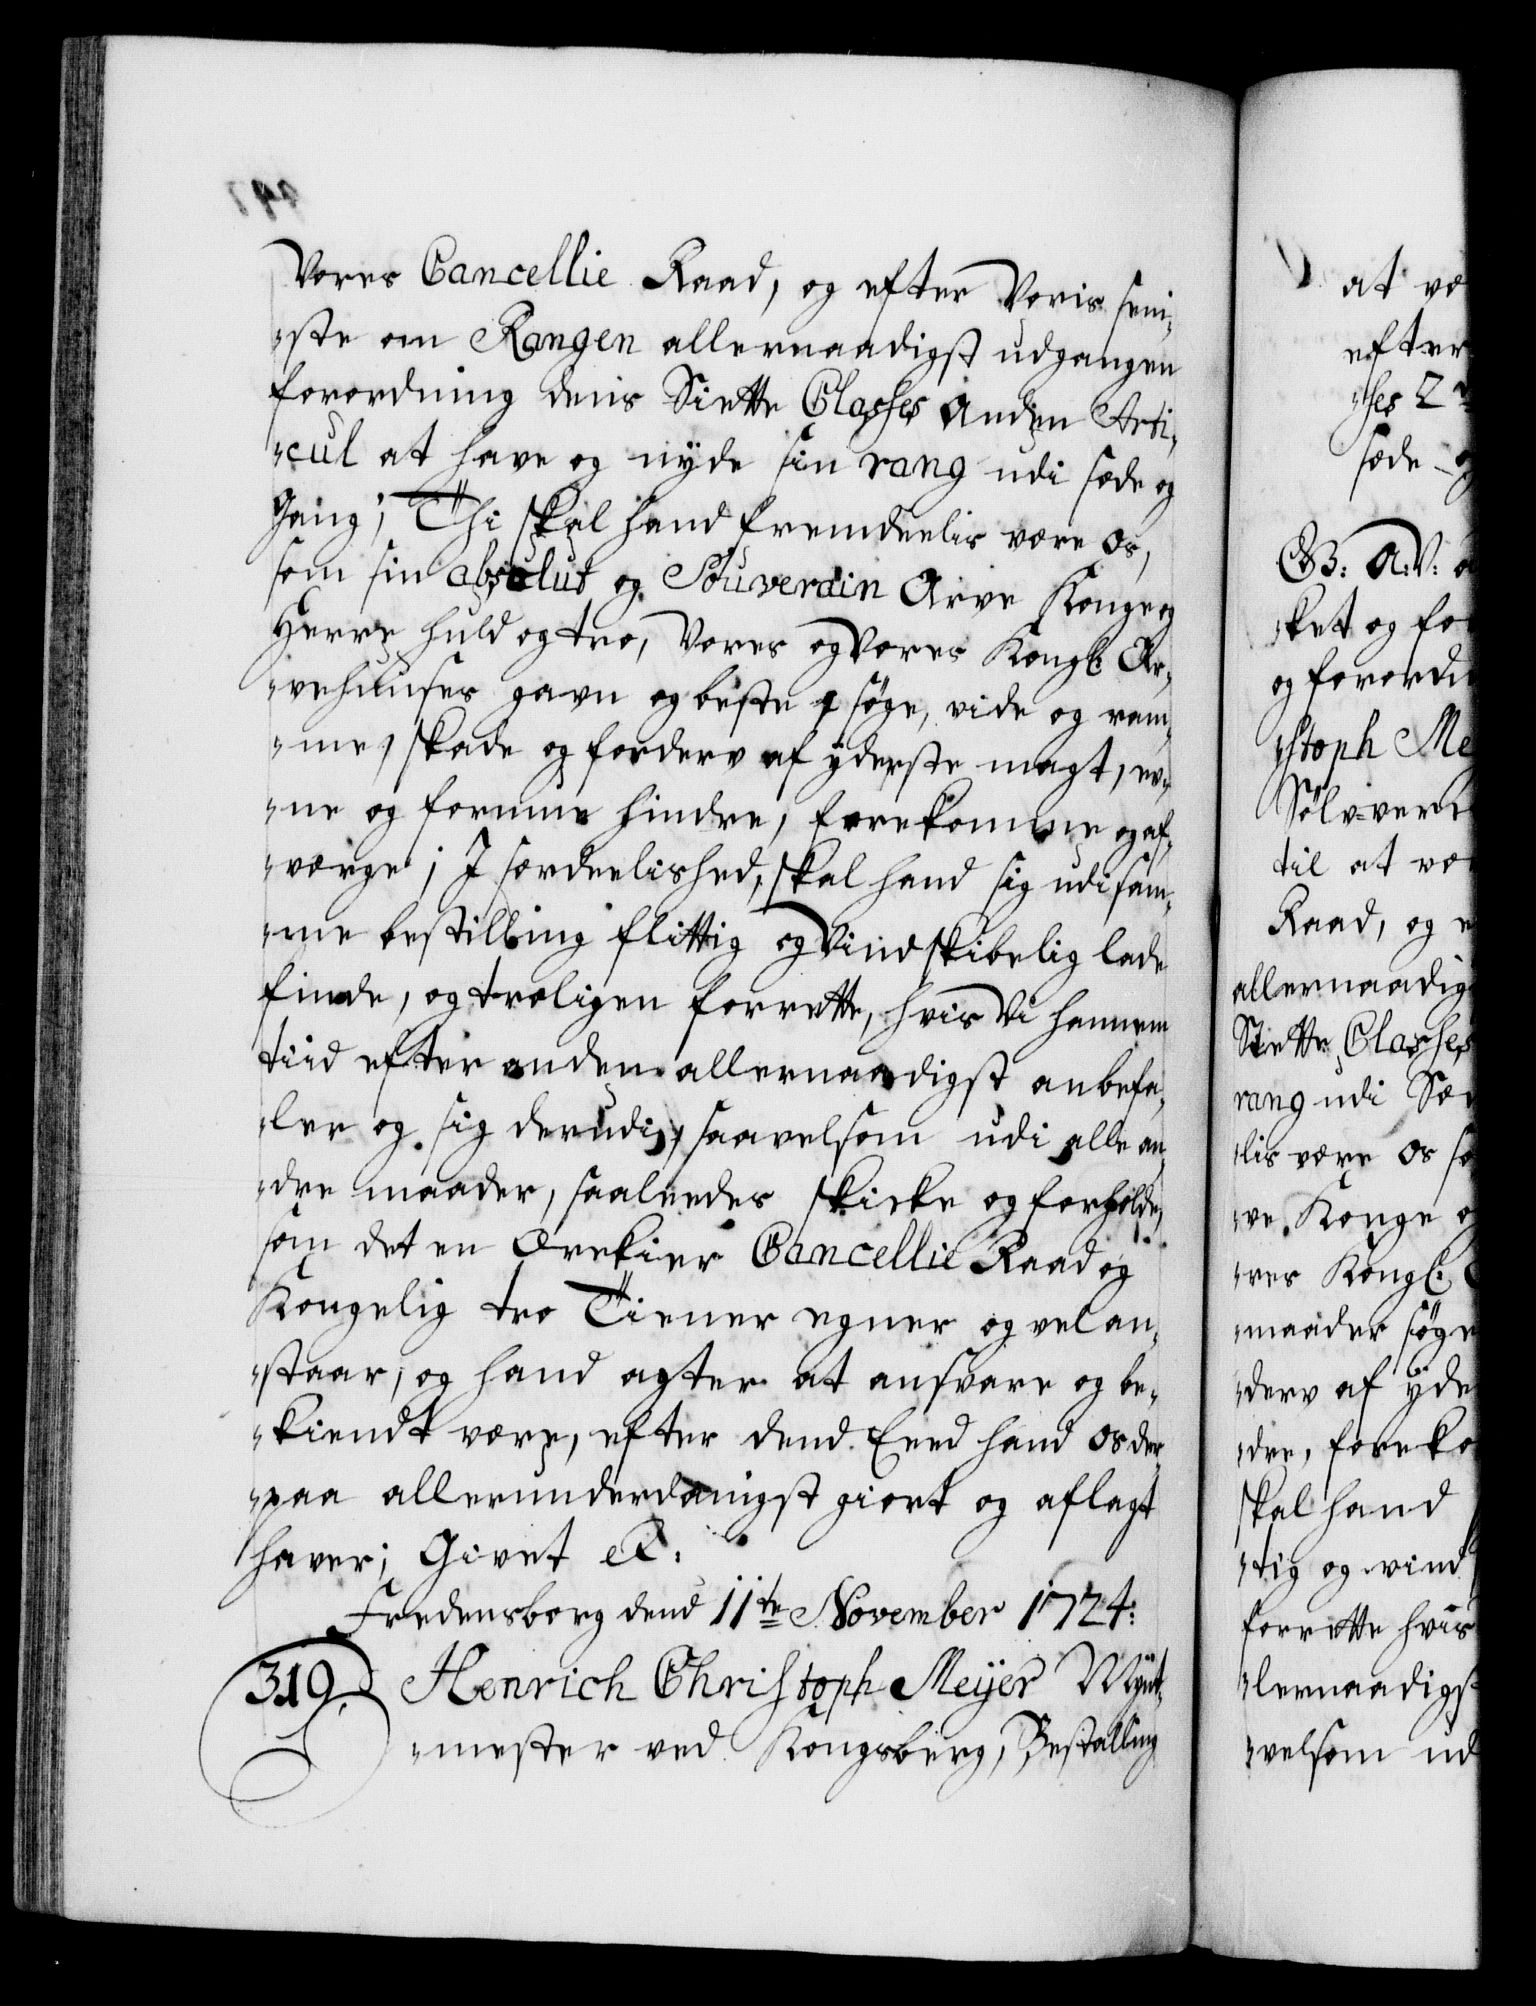 Vores Cancellie Raad, og efter Voris seni-
ste om Rangen allernaadigst udgangen
forordning dens Siette Classes Anden Arti-
cul at have og nyde sin rang udi sæde og
gang; Thi skal hand fremdeelis være Os,
som sin absolut og Souverain Arve Konge og
Herre huld og tro, Vores og Vores Kongl: Ar-
vehuuses gavn og beste søge, vide og ram-
me, skade og forderv af yderste magt, ev-
ne og formue hindre, forekomme og af-
værge; I særdeelished, skal hand sig udi sam-
me bestilling flittig og Vindskibelig lade
finde, og troligen forrette, hvis Vi hannem
tiid efter anden allernaadigst anbefa-
ler og sig derudi, saavelsom udi alle an-
dre maader, saaledes skicke og forholde,
som det en Ærekier Cancellie Raad og
Kongelig tro Tiener egner og vel an-
staar, og hand agter at ansvare og be-
kiendt være, efter dend Eed hand Os der-
paa allerunderdanigst giort og aflagt
haver; Givet etc.
Fredensborg dend 11te November 1724:
319. Henrich Christoph Meyer Mynt-
mester ved Kongsberg, Bestalling
at væ
efter
ses 2
sæde og
G: A: V:
ket og for
og forord
stoph Me
Sølv-ver
til at vær
Raad, og e
allernaadig
Siette Classes
rang udi Sæ
lis være Os so
ve Konge o
res Kongl:
maader søge
derv af yde
dre, foreko
skal hand
tig og vind
forrette hvis
lernaadigst
velsom ud